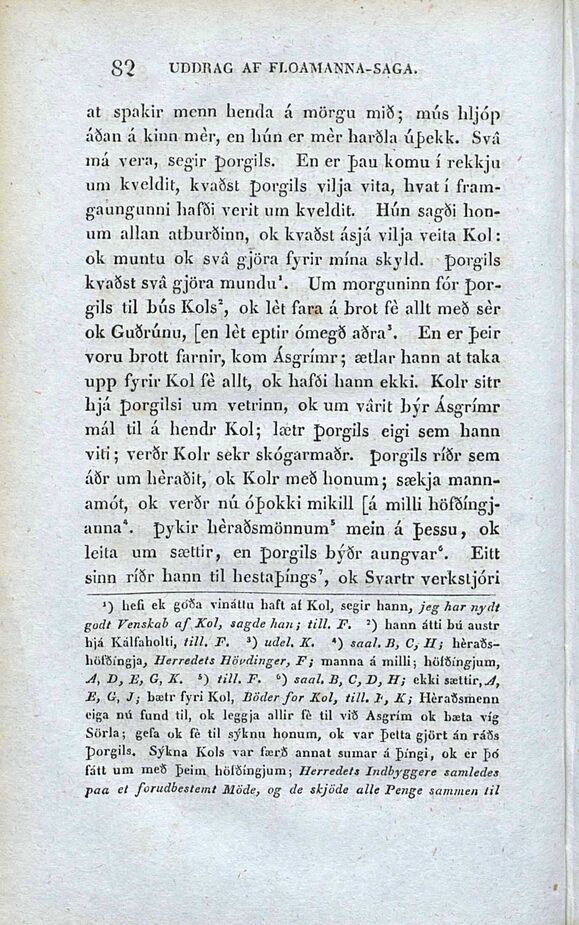 82 UDDRAG AF FLOAMANNA-SAGA.
at spakir menn henda á mörgu mið; mús hljóp
áðan á kinn mèr, en hún er mèr harðla úþekk. Svâ
má vera, segir Þorgils. En er þau komu í rekkju
um kveldit, kvaðst Þorgils vilja vita, hvat í fram-
gaúngunni hafði verit um kveldit. Hún sagði hon-
um allan atburðinn, ok kvaðst ásjá vilja veita Kol:
ok muntu ok svâ gjöra fyrir mína skyld. Þorgils
kvaðst svâ gjöra mundu¹. Um morguninn fór Þor-
gils til bús Kols², ok lèt fara á brot fè allt með sèr
ok Guðrúnu, [en lèt eptir ómegð aðra³. En er þeir
voru brott farnir, kom Ásgrímr; ætlar hann at taka
upp fyrir Kol fè allt, ok hafði hann ekki. Kolr sitr
hjá Þorgilsi um vetrinn, ok um vârit býr Ásgrímr
mál til á hendr Kol; lætr Þorgils eigi sem hann
viti; verðr Kolr sekr skógarmaðr. Þorgils ríðr sem
áðr um hèraðit, ok Kolr með honum; sækja mann-
amót, ok verðr nú óþokki mikill [á milli höfðíngj-
anna⁴. Þykir hèraðsmönnum⁵ mein á þessu, ok
leita um sættir, en Þorgils býðr aungvar⁶. Eitt
sinn ríðr hann til hestaþíngs⁷, ok Svartr verkstjóri
¹) hefi ek góða vináttu haft af Kol, segir hann, jeg har nydt
godt Venskab af Kol, sagde han; till. F. ²) hann átti bú austr
hjá Kálfaholti, till. F. ³) udel. K. ⁴) saal. B, C, H; hèraðs-
höfðíngja, Herredets Hövdinger, F; manna á milli; höfðíngjum,
A, D, E, G, K. ⁵) till. F. ⁶) saal. B, C, D, H; ekki sættir, A,
E, G, J; bætr fyri Kol, Böder for Kol, till. F, K; Hèraðsmenn
eiga nú fund til, ok leggja allir fè til við Asgrím ok bæta víg
Sörla; gefa ok fè til sýknu honum, ok var þetta gjört án ráðs
Þorgils. Sýkna Kols var færð annat sumar á þíngi, ok er þó
fátt um með þeim höfðíngjum; Herredets Indbyggere samledes
paa et forudbestemt Möde, og de skjöde alle Penge sammen til